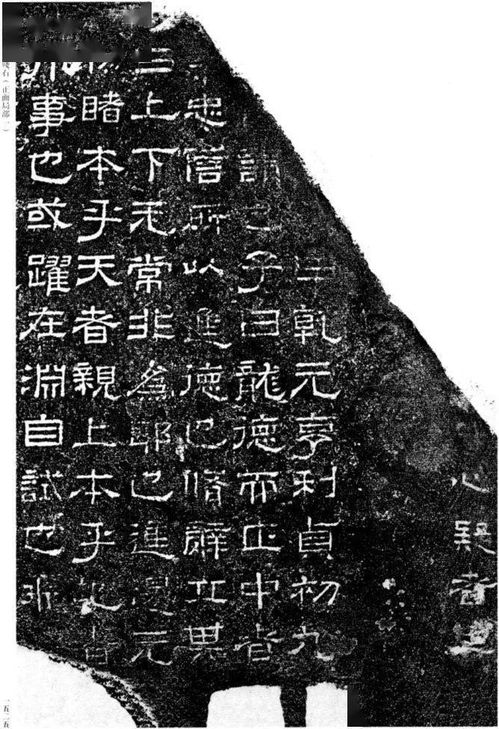 心疑者
曰乾元亨利貞初九
謂也子曰龍德而正中者
忠信所以進德也脩辭立其
曰上下无常非為邪也進退无
物睹本乎天者親上本乎地者
事也或躍在淵自試也飛
石(正面局部一)